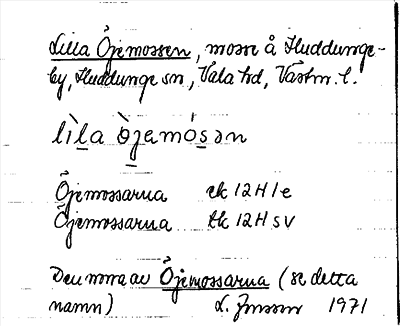 Lilla Öjemossen, mosse å Huddunge-
by, Huddunge sn, Vala hd, Västm. l.
lìla ò̱jemósən
Öjemossarna ek 12 H 1 e
Öjemossarna tk 12 H SV
Den norra av Öjemossarna (se detta
namn) 1971